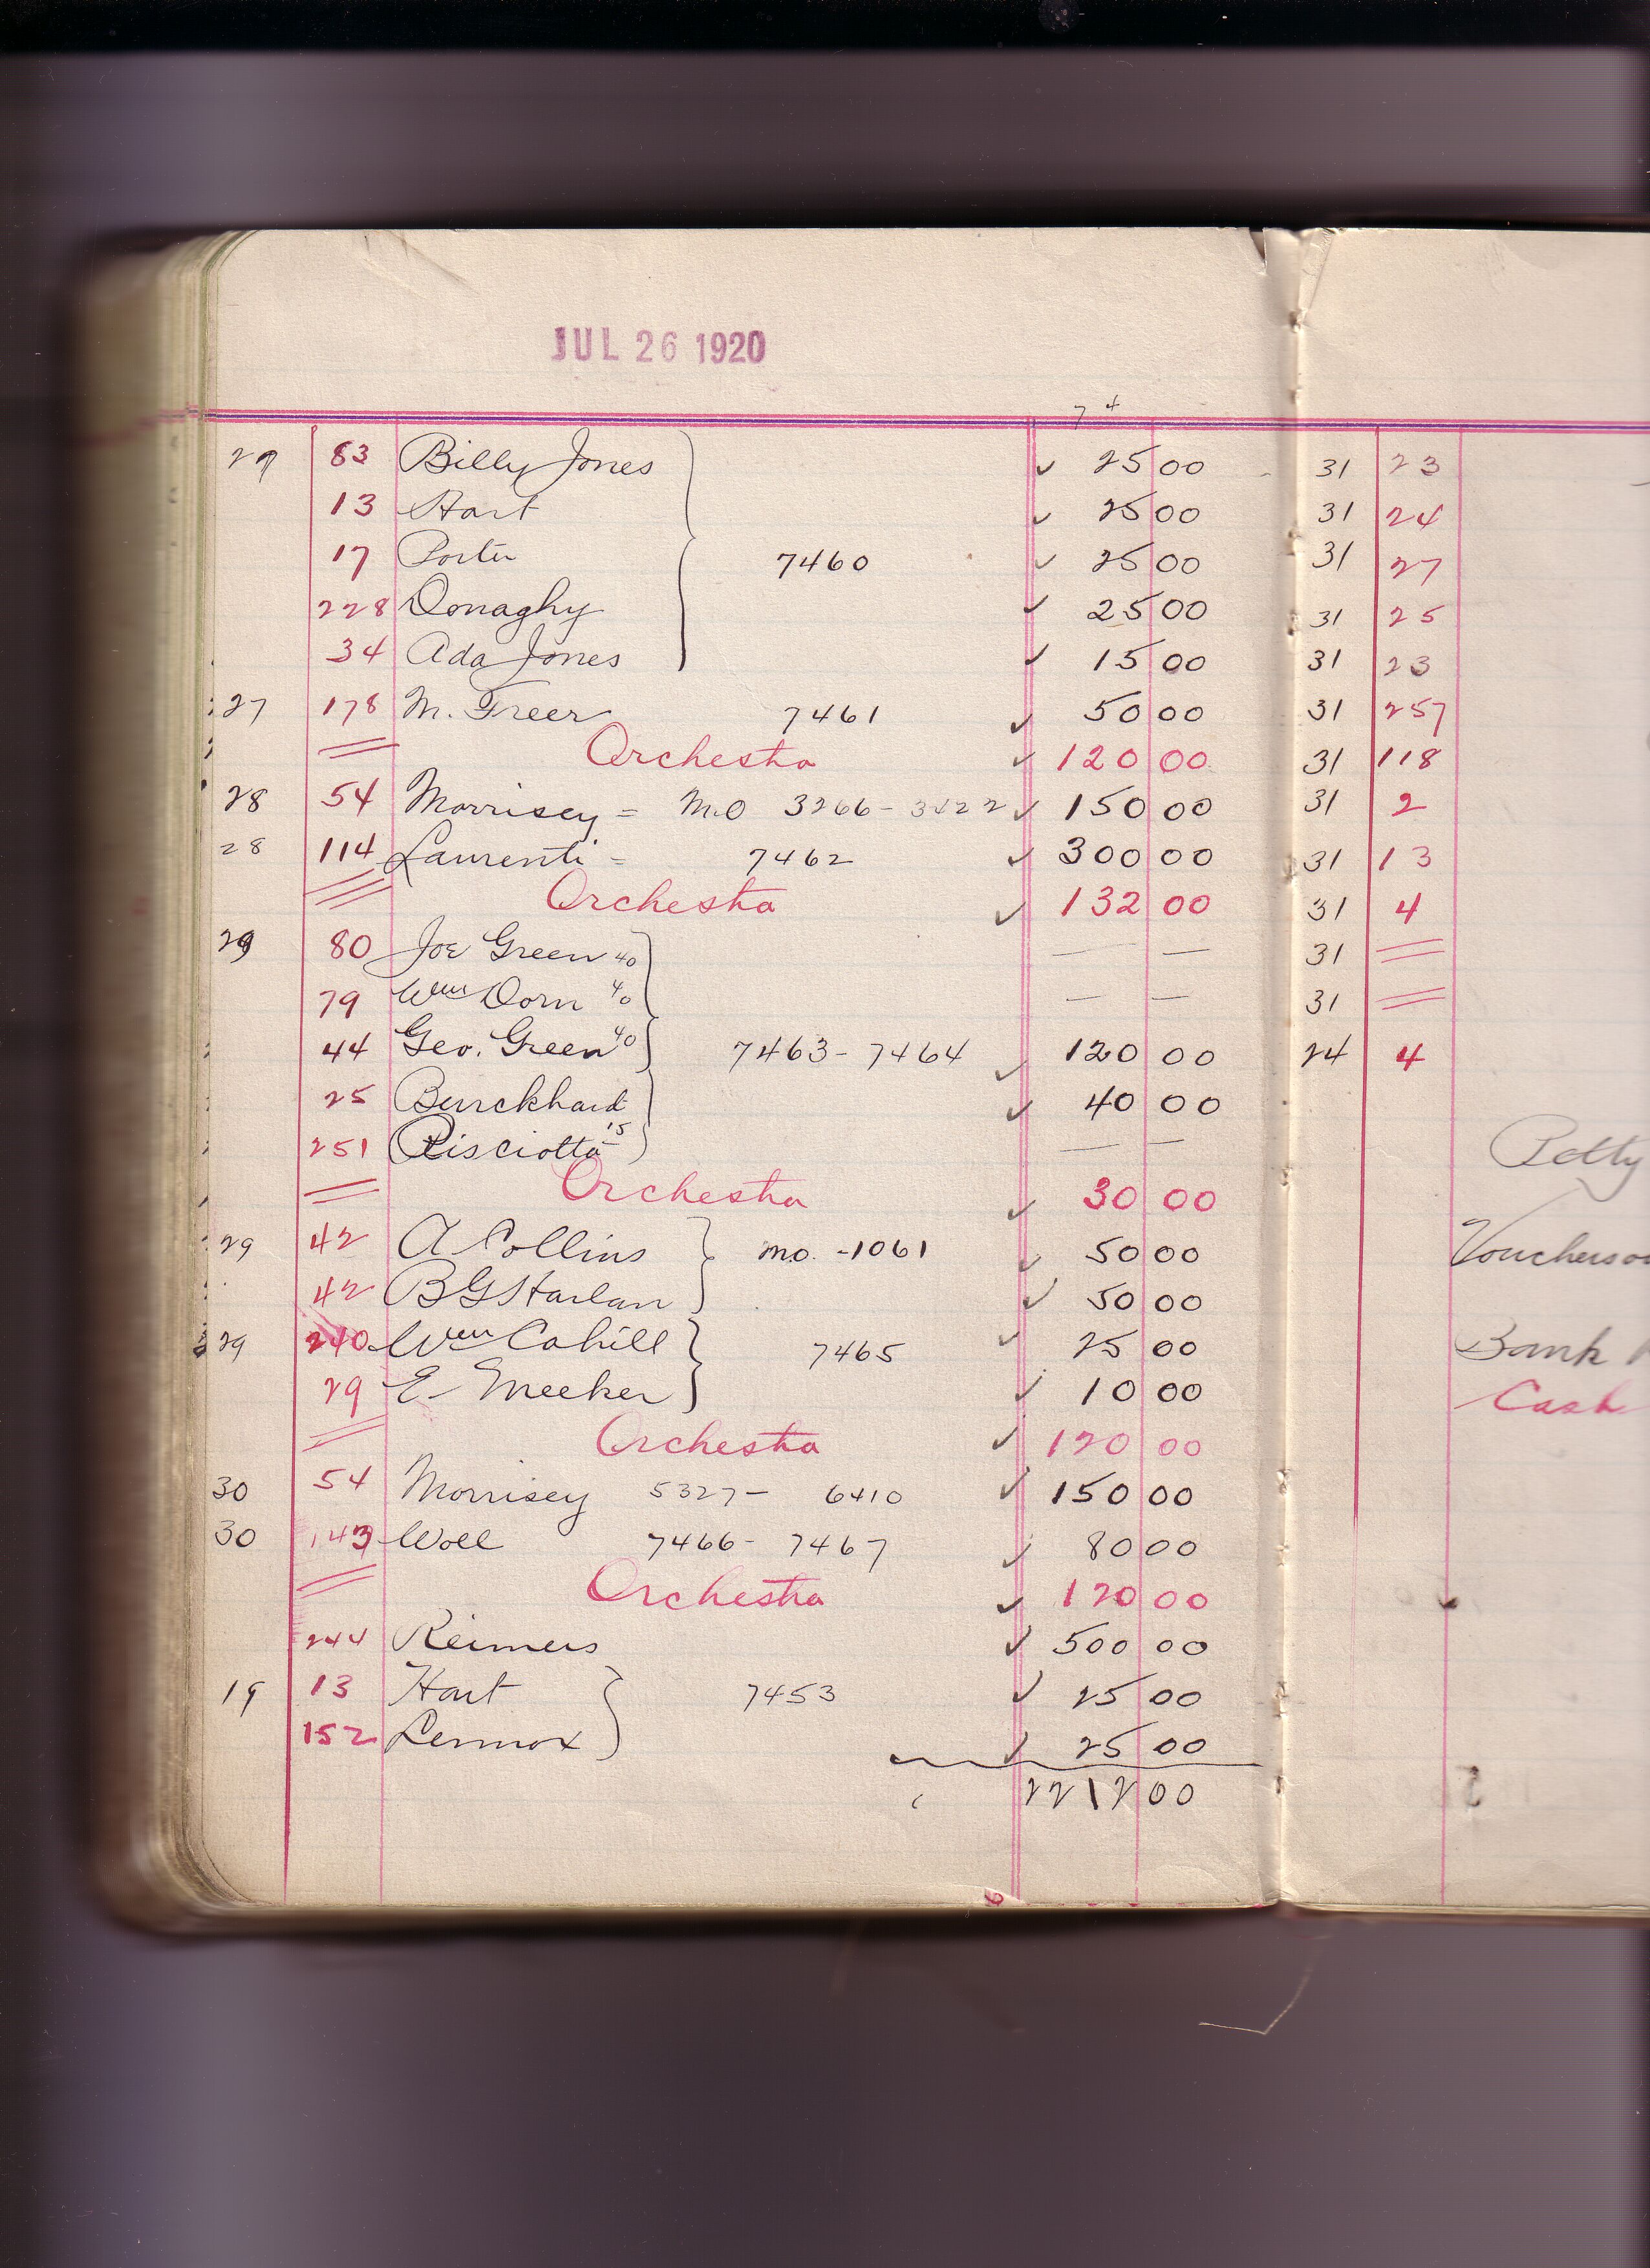 JUL 26 1920
7 4
27 83 Billy Jones 25 00
13 Hart 25 00
17 Porter 7460 25 00
228 Donaghy 25 00
34 Ada Jones 15 00
27 178 M. Freer 7461 50 00
Orchestra 120 00
28 54 Morrisey = M.O 3266 - 3422 150 00
28 114 Laurenti - 7462 300 00
Orchestra 132 00
29 80 Joe Green 40 — —
79 Wm Dorn 40 — —
44 Geo. Green 40 7463 - 7464 120 00
25 Burckhard 40 00
251 Pisciotta 15 — —
Orchestra 30 00
29 42 A Collins mo. - 1061 50 00
42 BG Harlan 50 00
29 240 Wm Cahill 7465 25 00
29 E Meeker 10 00
Orchestra 120 00
30 54 Morrisey 5327 - 6410 150 00
30 143 Woll 7466 - 7467 80 00
Orchestra 120 00
244 Reimers 500 00
19 13 Hart 7453 25 00
152 Lennox 25 00
2212 00
31 23
31 24
31 27
31 25
31 23
31 257
31 118
31 2
31 13
31 4
31
31
24 4
Petty
Vouchers
Bank
Cash